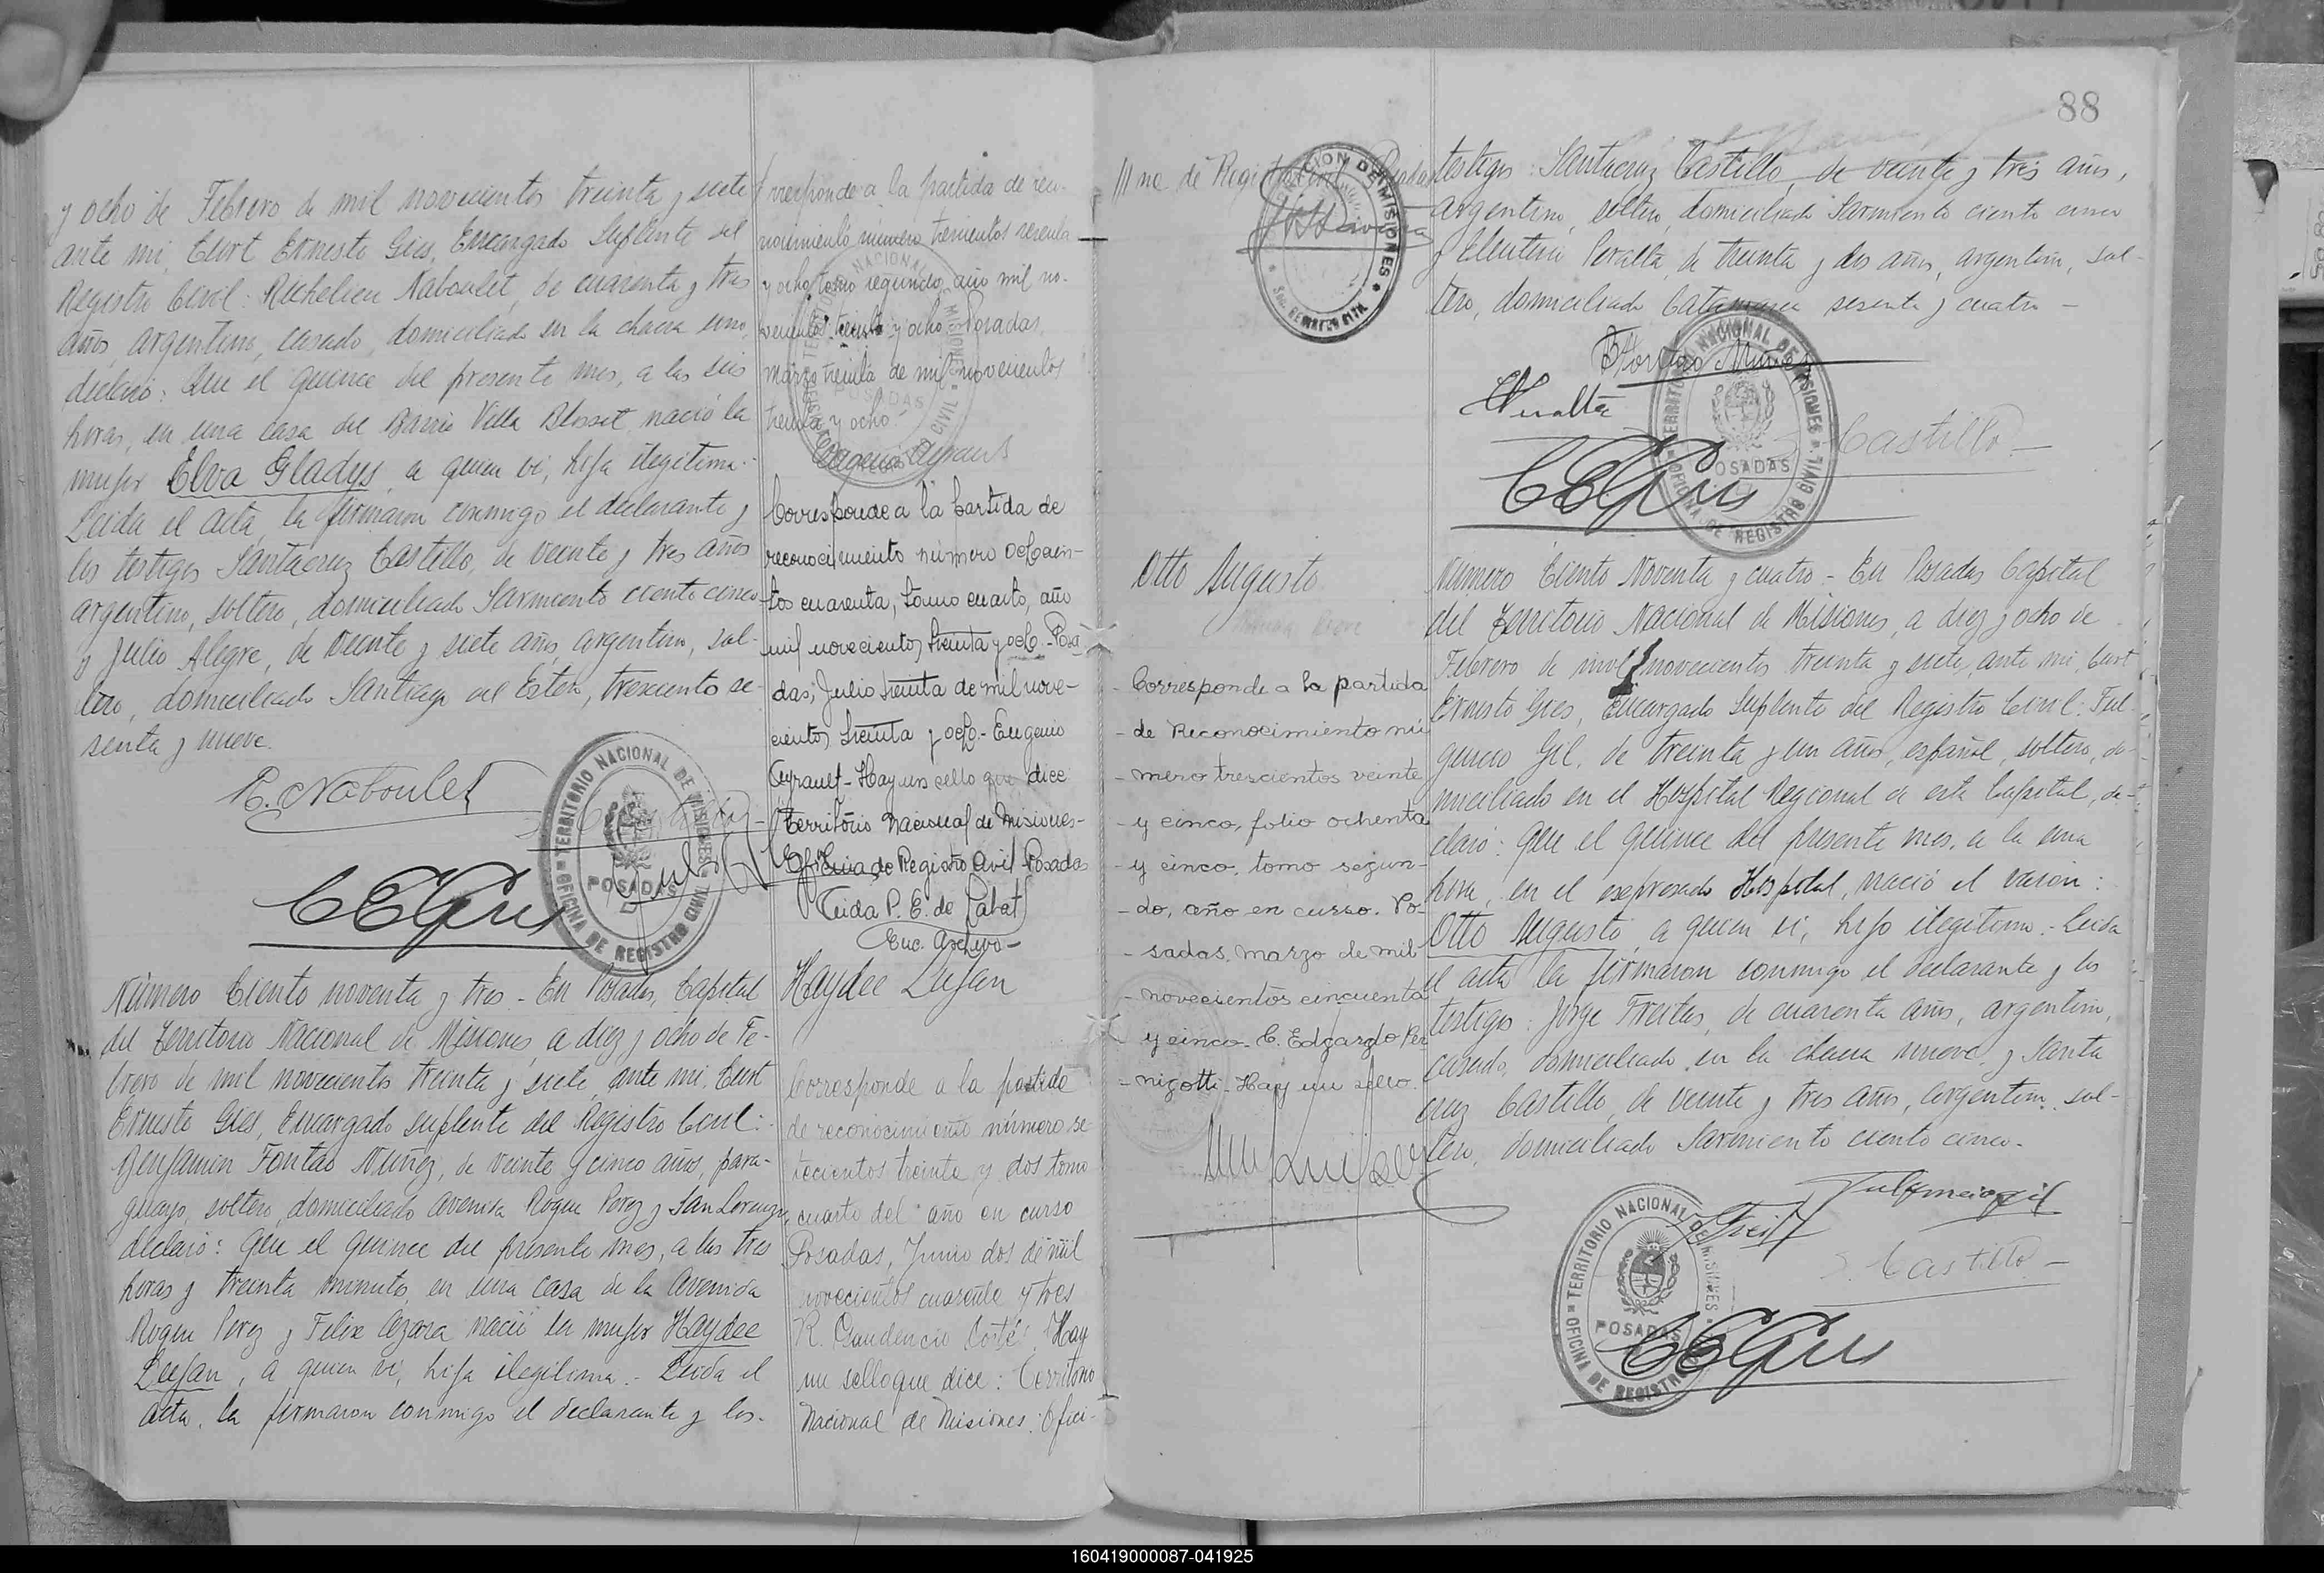 y ocho de Febrero de mil novecientos treinta y siete
ante mi, Curt Ernesto Gies, Encargado Suplente del
Registro Civil: Richelieu Naboulet, de cuarenta y tres
años, argentino, casado, domiciliado en la chacra uno,
declaró: Que el quince del presente mes, a las seis
horas, en una casa del Barrio Villa Blosset, nació la
mujer Elva Gladys, a quien vi, hija ilegitima.-
Leida el acta, la firmaron conmigo el declarante y
los testigos Santacruz Castillo, de veinte y tres años
argentino, soltero, domiciliado Sarmiento ciento cinco
y Julio Alegre, de veinte y siete años, argentino, sol-
tero, domiciliado Santiago del Estero, trescientos se-
senta y nueve.
R. Naboulet
TERRITORIO NACIONAL DE MISIONES
POSADAS
OFICINA DE REGISTRO CIVIL
CEGies
Número Ciento noventa y tres - En Posadas, Capital
del Territorio Nacional de Misiones, a diez y ocho de Fe-
brero de mil novecientos treinta y siete, ante mi, Curt
Ernesto Gies, Encargado suplente del Registro Civil:
Benjamin Fontao Nuñez, de veinte y cinco años, para-
guayo, soltero, domiciliado avenida Roque Perez y San Lorenzo,
declaró: Que el quince del presente mes, a las tres
horas y treinta minutos, en una casa de la Avenida
Roque Perez y Felix Azara nació la mujer Haydee
Lujan, a quien vi, hija ilegitima.- Leida el
acta, la firmaron conmigo el declarante y los-
rresponde a la partida de reco-
nocimiento número trescientos sesenta
y ocho tomo segundo, año mil no-
vecientos treinta y ocho. Posadas,
marzo treinta de mil novecientos
treinta y ocho.
Eugenio Ayrault
Corresponde a la partida de
reconocimiento número ochocien-
tos cuarenta, tomo cuarto, año
mil novecientos treinta y ocho.- Posa
das, Julio treinta de mil nove-
cientos treinta y ocho.- Eugenio
Ayrault - Hay un sello que dice
Territorio Nacional de Misiones-
Oficina de Registro Civil Posadas
P. E. de Labat
Enc. Archivo-
Haydee Lujan
Corresponde a la partida
de reconocimiento número se-
tecientos treinta y dos tomo
cuarto del año en curso
Posadas, Junio dos de mil
novecientos cuarenta y tres
R. Gaudencio Cortés. Hay
un sello que dice: Territorio
Nacional de Misiones. Ofici-
88
na de Registro Civil Posadas
DE MISIONES
Otto Augusto
Corresponde a la partida
de Reconocimiento nú
mero trescientos veinte
y cinco, folio ochenta
y cinco, tomo segun-
do, año en curso. Po-
sadas, marzo de mil
novecientos cincuenta
y cinco. C. Edgardo Per
nigotti - Hay un sello.
testigos: Santacruz Castillo, de veinte y tres años,
argentino, soltero, domiciliado Sarmiento ciento cinco
y Eleuterio Peralta, de treinta y dos años, argentino, sol-
tero, domiciliado Catamarca sesenta y cuatro -
B Fontao Nuñez
EPeralta
S. Castillo -
CEGies
TERRITORIO NACIONAL DE MISIONES
POSADAS
OFICINA DE REGISTRO CIVIL
Número Ciento Noventa y cuatro - En Posadas Capital
del Territorio Nacional de Misiones, a diez y ocho de
Febrero de mil novecientos treinta y siete, ante mi, Curt
Ernesto Gies, Encargado Suplente del Registro Civil: Ful-
gencio Gil, de treinta y un años, español, soltero, do-
miciliado en el Hospital Regional de esta Capital, de-
claró: Que el quince del presente mes, a la una
hora, en el expresado Hospital, nació el varón:
Otto Augusto, a quien vi, hijo ilegitimo.- Leida
el acta la firmaron conmigo el declarante y los
testigos: Jorge Freitas, de cuarenta años, argentino,
casado, domiciliado en la chacra nueve y Santa
cruz Castillo, de veinte y tres años, argentino, sol-
tero, domiciliado Sarmiento ciento cinco.-
Fulgencio Gil
S. Castillo -
TERRITORIO NACIONAL DE MISIONES
POSADAS
OFICINA DE REGISTRO
CEGies
160419000087-041925